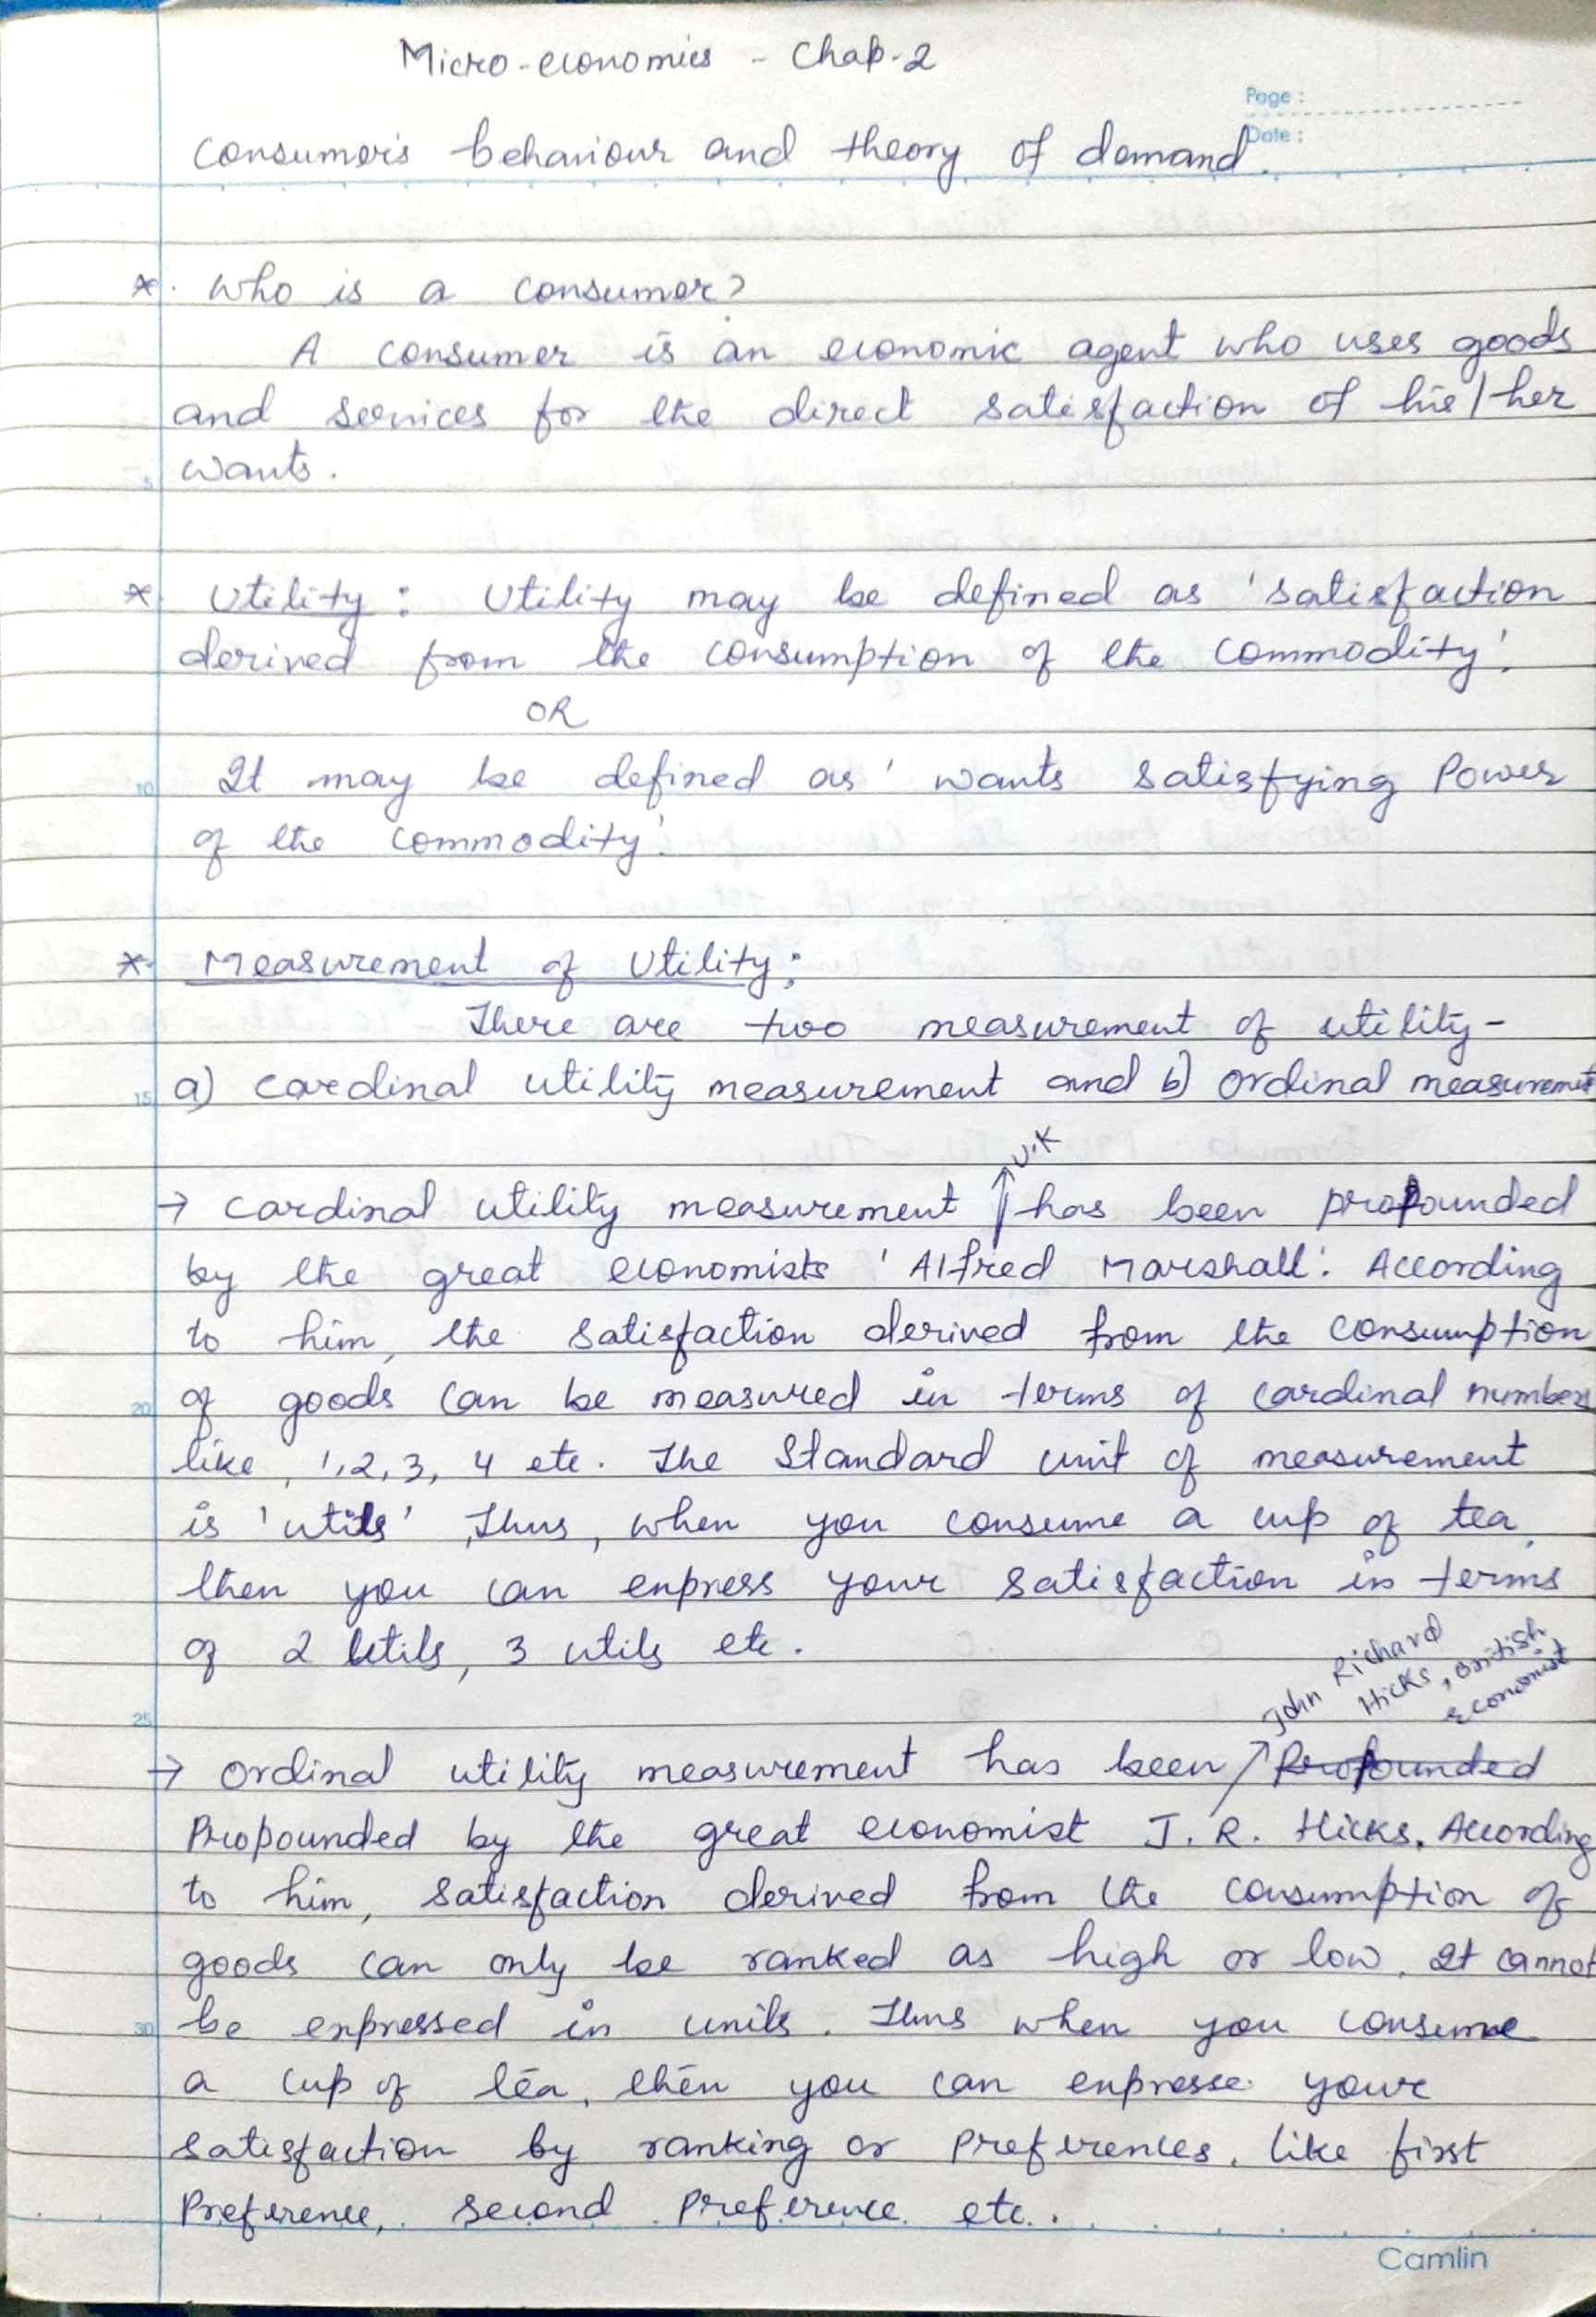 Micro-economics - Chap-2
Page :
Date :
Consumer's behaviour and theory of demand.
* Who is a consumer?
A consumer is an economic agent who uses goods
and services for the direct satisfaction of his/her
5
wants.
* Utility : Utility may be defined as 'satisfaction
derived from the consumption of the commodity'.
OR
10
It may be defined as 'wants satisfying Power
of the commodity'.
* Measurement of Utility :
There are two measurement of utility -
15
a) cardinal utility measurement and b) ordinal measurement
U.K
→ Cardinal utility measurement ↑ has been propounded
by the great economists 'Alfred Marshall'. According
to him, the satisfaction derived from the consumption
20
of goods can be measured in terms of cardinal numbers
like, 1,2,3, 4 etc. The Standard unit of measurement
is 'utils'. Thus, when you consume a cup of tea,
then you can express your satisfaction in terms
of 2 utils, 3 utils etc.
John Richard
Hicks, British
economist
25
→ Ordinal utility measurement has been ↗ Propounded
Propounded by the great economist J. R. Hicks. According
to him, satisfaction derived from the consumption of
goods can only be ranked as high or low. It cannot
30
be expressed in units. Thus when you consume
a cup of tea, then you can expresse your
satisfaction by ranking or preferences, like first
Preference, second preference etc.
Camlin